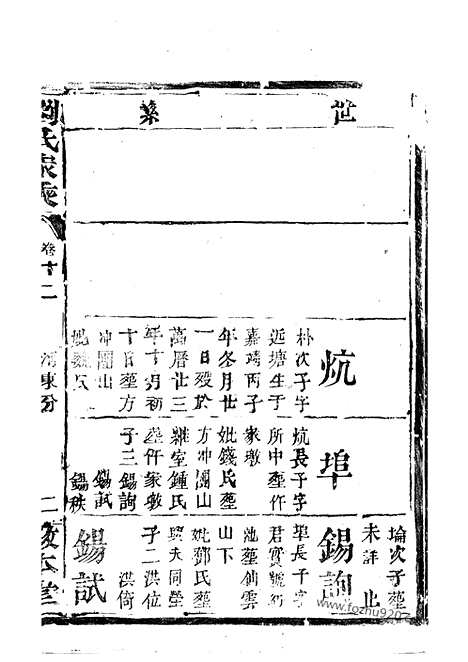 世
系
炕
朴次子字
近塘生于
嘉靖丙子
年冬月廿
一日歿於
萬曆廿三
年十月初
十日葬方
冲團山
妣魏氏
埠
炕長子字
所中葬作
家墩
妣錢氏葬
方冲團山
繼室鍾氏
葬仟家墩
子三錫詢
錫試
錫秩
埨次子葬
未詳止
錫詢
埠長子字
君實號
池葬仙雲
山下
妣鄧氏葬
與夫同塋
子二洪位
洪倚
錫試
劉氏家乘
卷十二
河東分
二
www.fozhu920.com